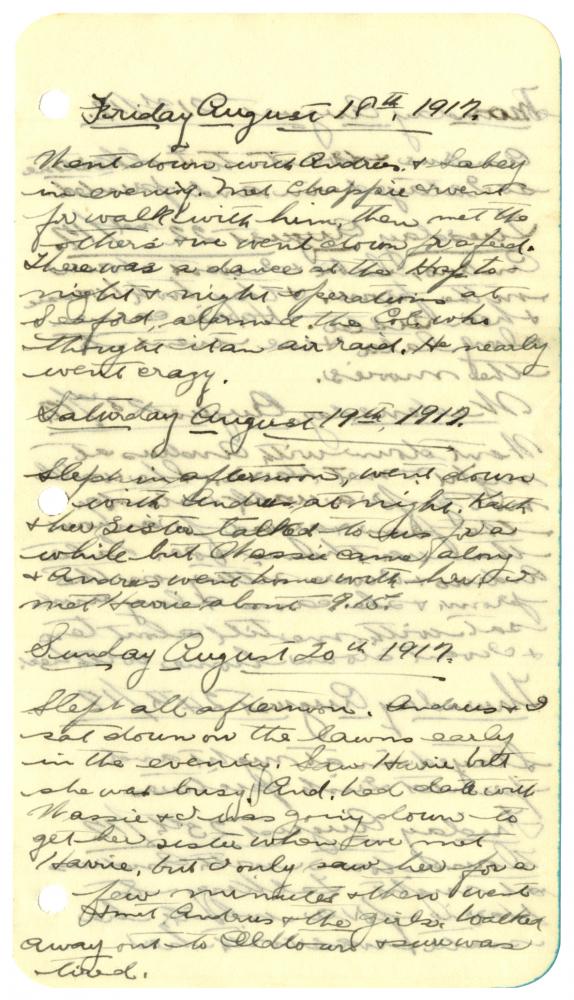 Friday August 18th, 1917.
Went down with Andrus. & Sabey
in evening. Met Chappie & went
for walk with him, then met the
others & we went down for a feed.
There was a dance at the Hosp. to-
night & night operations at
Seaford, alarmed the C.O. who
thought it an air raid. He nearly
went crazy.
Saturday August 19th, 1917.
Slept in afternoon, went down
with Andrus at night. Kath
& her sister talked to us for a
while but Wassie came along
& Andrus went home with her. I
met Havie about 9.15.
Sunday August 20th 1917.
Slept all afternoon. Andrus & I
sat down on the lawns early
in the evening. Saw Havie but
she was busy. And. had date with
Wassie & I was going down to
get her sister when we met
Havie, but I only saw her for a
few minutes & then went
& met Andrus & the girls. Walked
away out to Oldtown & sure was
tired.